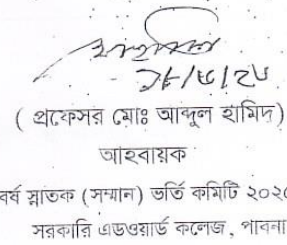 ১৮/৫/২৫
( প্রফেসর মোঃ আব্দুল হামিদ)
আহবায়ক
বর্ষ স্নাতক (সম্মান) ভর্তি কমিটি ২০২
সরকারি এডওয়ার্ড কলেজ, পাবনা